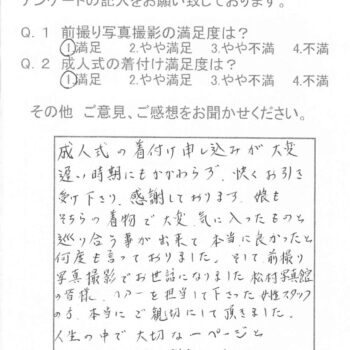 アンケートの記入をお願い致しております。
Q.1 前撮り写真撮影の満足度は？
①満足 2.やや満足 3.やや不満 4.不満
Q.2 成人式の着付け満足度は？
①満足 2.やや満足 3.やや不満 4.不満
その他 ご意見、ご感想をお聞かせください。
成人式の着付け申し込みが大変
遅い時期にもかかわらず、快くお引き
受け下さり、感謝しております。娘も
そちらの着物で大変、気に入ったものと
巡り合う事が出来て本当に良かったと
何度も言っておりました。そして前撮り
写真撮影でお世話になりました松村写真館
の皆様、ヘアーを担当して下さった女性スタッフ
の方、本当にご親切にして頂きました。
人生の中で大切な一ページと